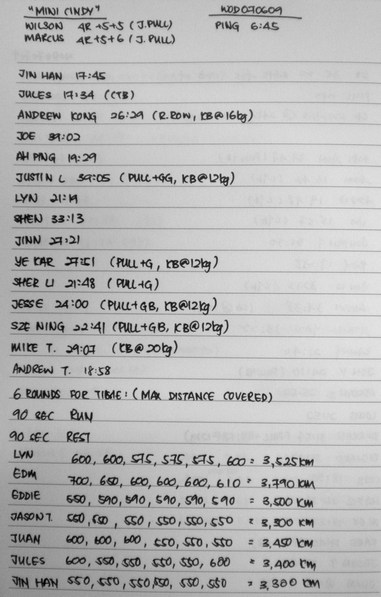 "MINI CINDY" WOD070609
WILSON 4R+5+5 (J.PULL) PING 6:45
MARCUS 4R+5+6 (J.PULL)
JIN HAN 17:45
JULES 17:34 (CTB)
ANDREW KONG 26:29 (R.ROW, KB@16kg)
JOE 39:02
AH PING 19:29
JUSTIN L 39:05 (PULL+GG, KB@12kg)
LYN 21:19
SHEN 33:13
JINN 27:21
YE KAR 27:51 (PULL+G, KB@12kg)
SHER LI 21:48 (PULL+G)
JESSE 24:00 (PULL+GB, KB@12kg)
SZE NING 22:41 (PULL+GB, KB@12kg)
MIKE T. 29:07 (KB@20kg)
ANDREW T. 18:58
6 ROUNDS FOR TIME: (MAX DISTANCE COVERED)
90 SEC RUN
90 SEC REST
LYN 600, 600, 575, 575, 575, 600 = 3,525KM
EDM 700, 650, 600, 600, 600, 610 = 3,790KM
EDDIE 550, 590, 590, 590, 590, 590 = 3,500KM
JASON T. 550, 550, 550, 550, 550, 550 = 3,300KM
JUAN 600, 600, 600, 550, 550, 550 = 3,450KM
JULES 600, 550, 550, 550, 550, 600 = 3,400KM
JIN HAN 550, 550, 550, 550, 550, 550 = 3,300KM